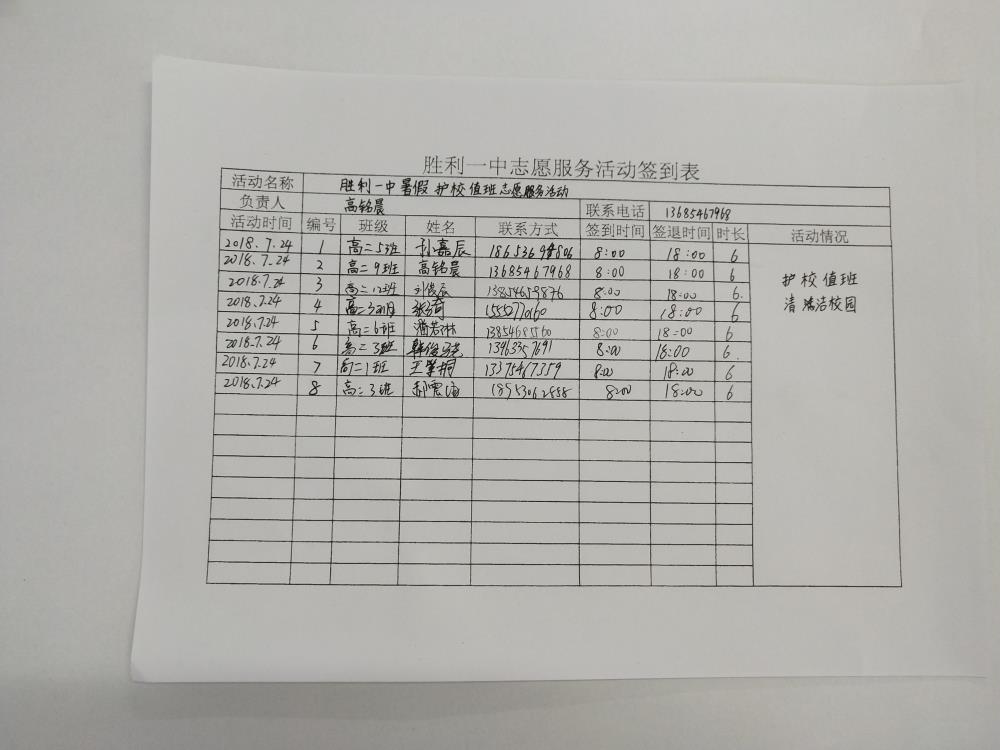 胜利一中志愿服务活动签到表
活动名称 胜利一中暑假护校值班志愿服务活动
负责人 高铭晨 联系电话 13685467968
活动时间 编号 班级 姓名 联系方式 签到时间 签退时间 时长 活动情况
2018.7.24 1 高二5班 孙嘉辰 8:00 18:00 6
2018.7.24 2 高二9班 高铭晨 13685467968 8:00 18:00 6
2018.7.24 3 高二12班 13854659876 8:00 18:00 6.
2018.7.24 4 高二3班 8:00 18:00 6
2018.7.24 5 高二6班 8:00 18:00 6
2018.7.24 6 高二3班 13963357691 8:00 18:00 6.
2018.7.24 7 高二1班 13375467359 8:00 18:00 6
2018.7.24 8 高二3班 18953062858 8:00 18:00 6
护校值班
清洁校园